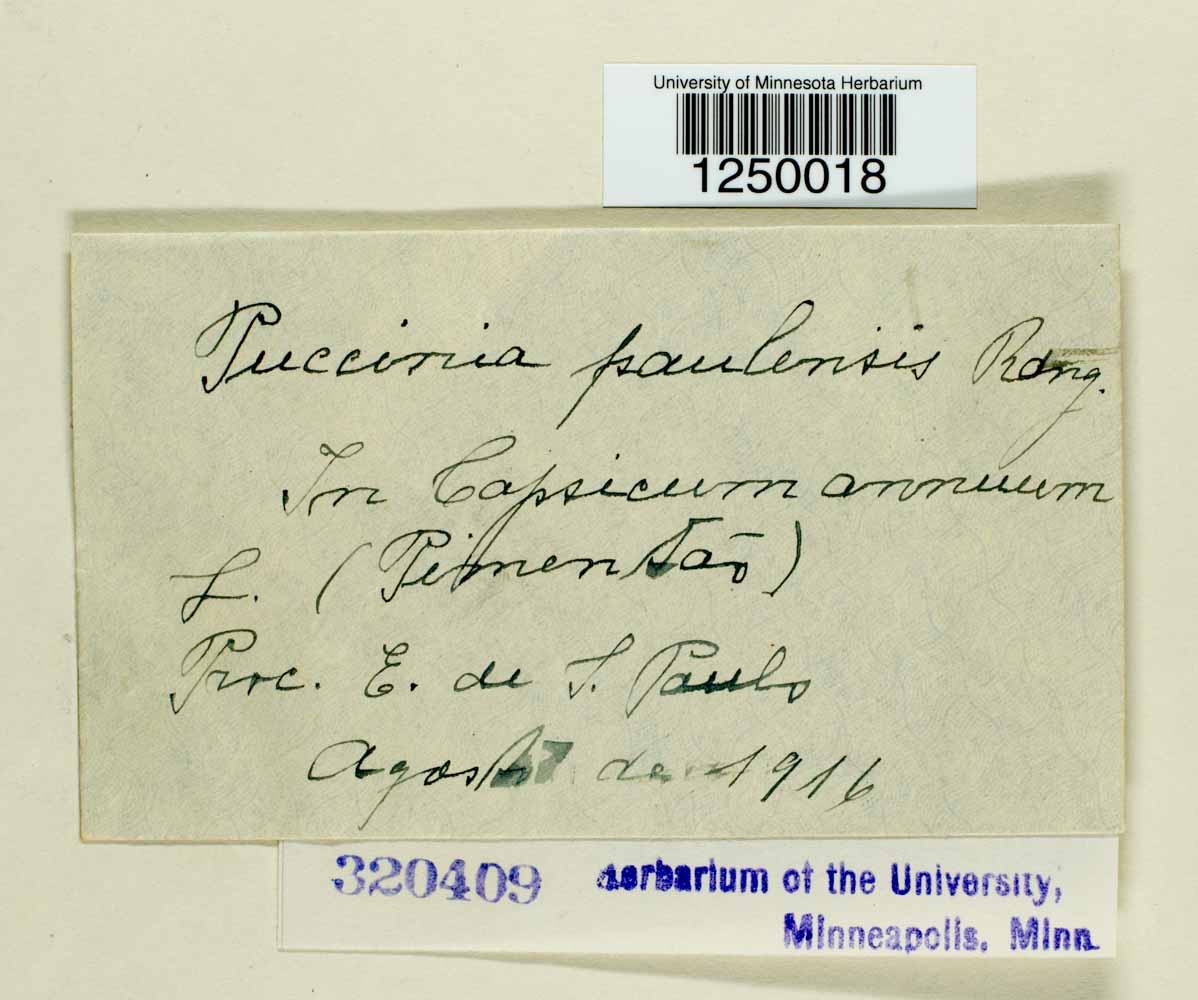 University of Minnesota Herbarium
1250018
Puccinia paulensis Rang.
In Capsicum annuum
L. (Pimentão)
Proc. E. de S. Paulo
Agosto de 1916
320409 Herbarium of the University,
Minneapolis, Minn.